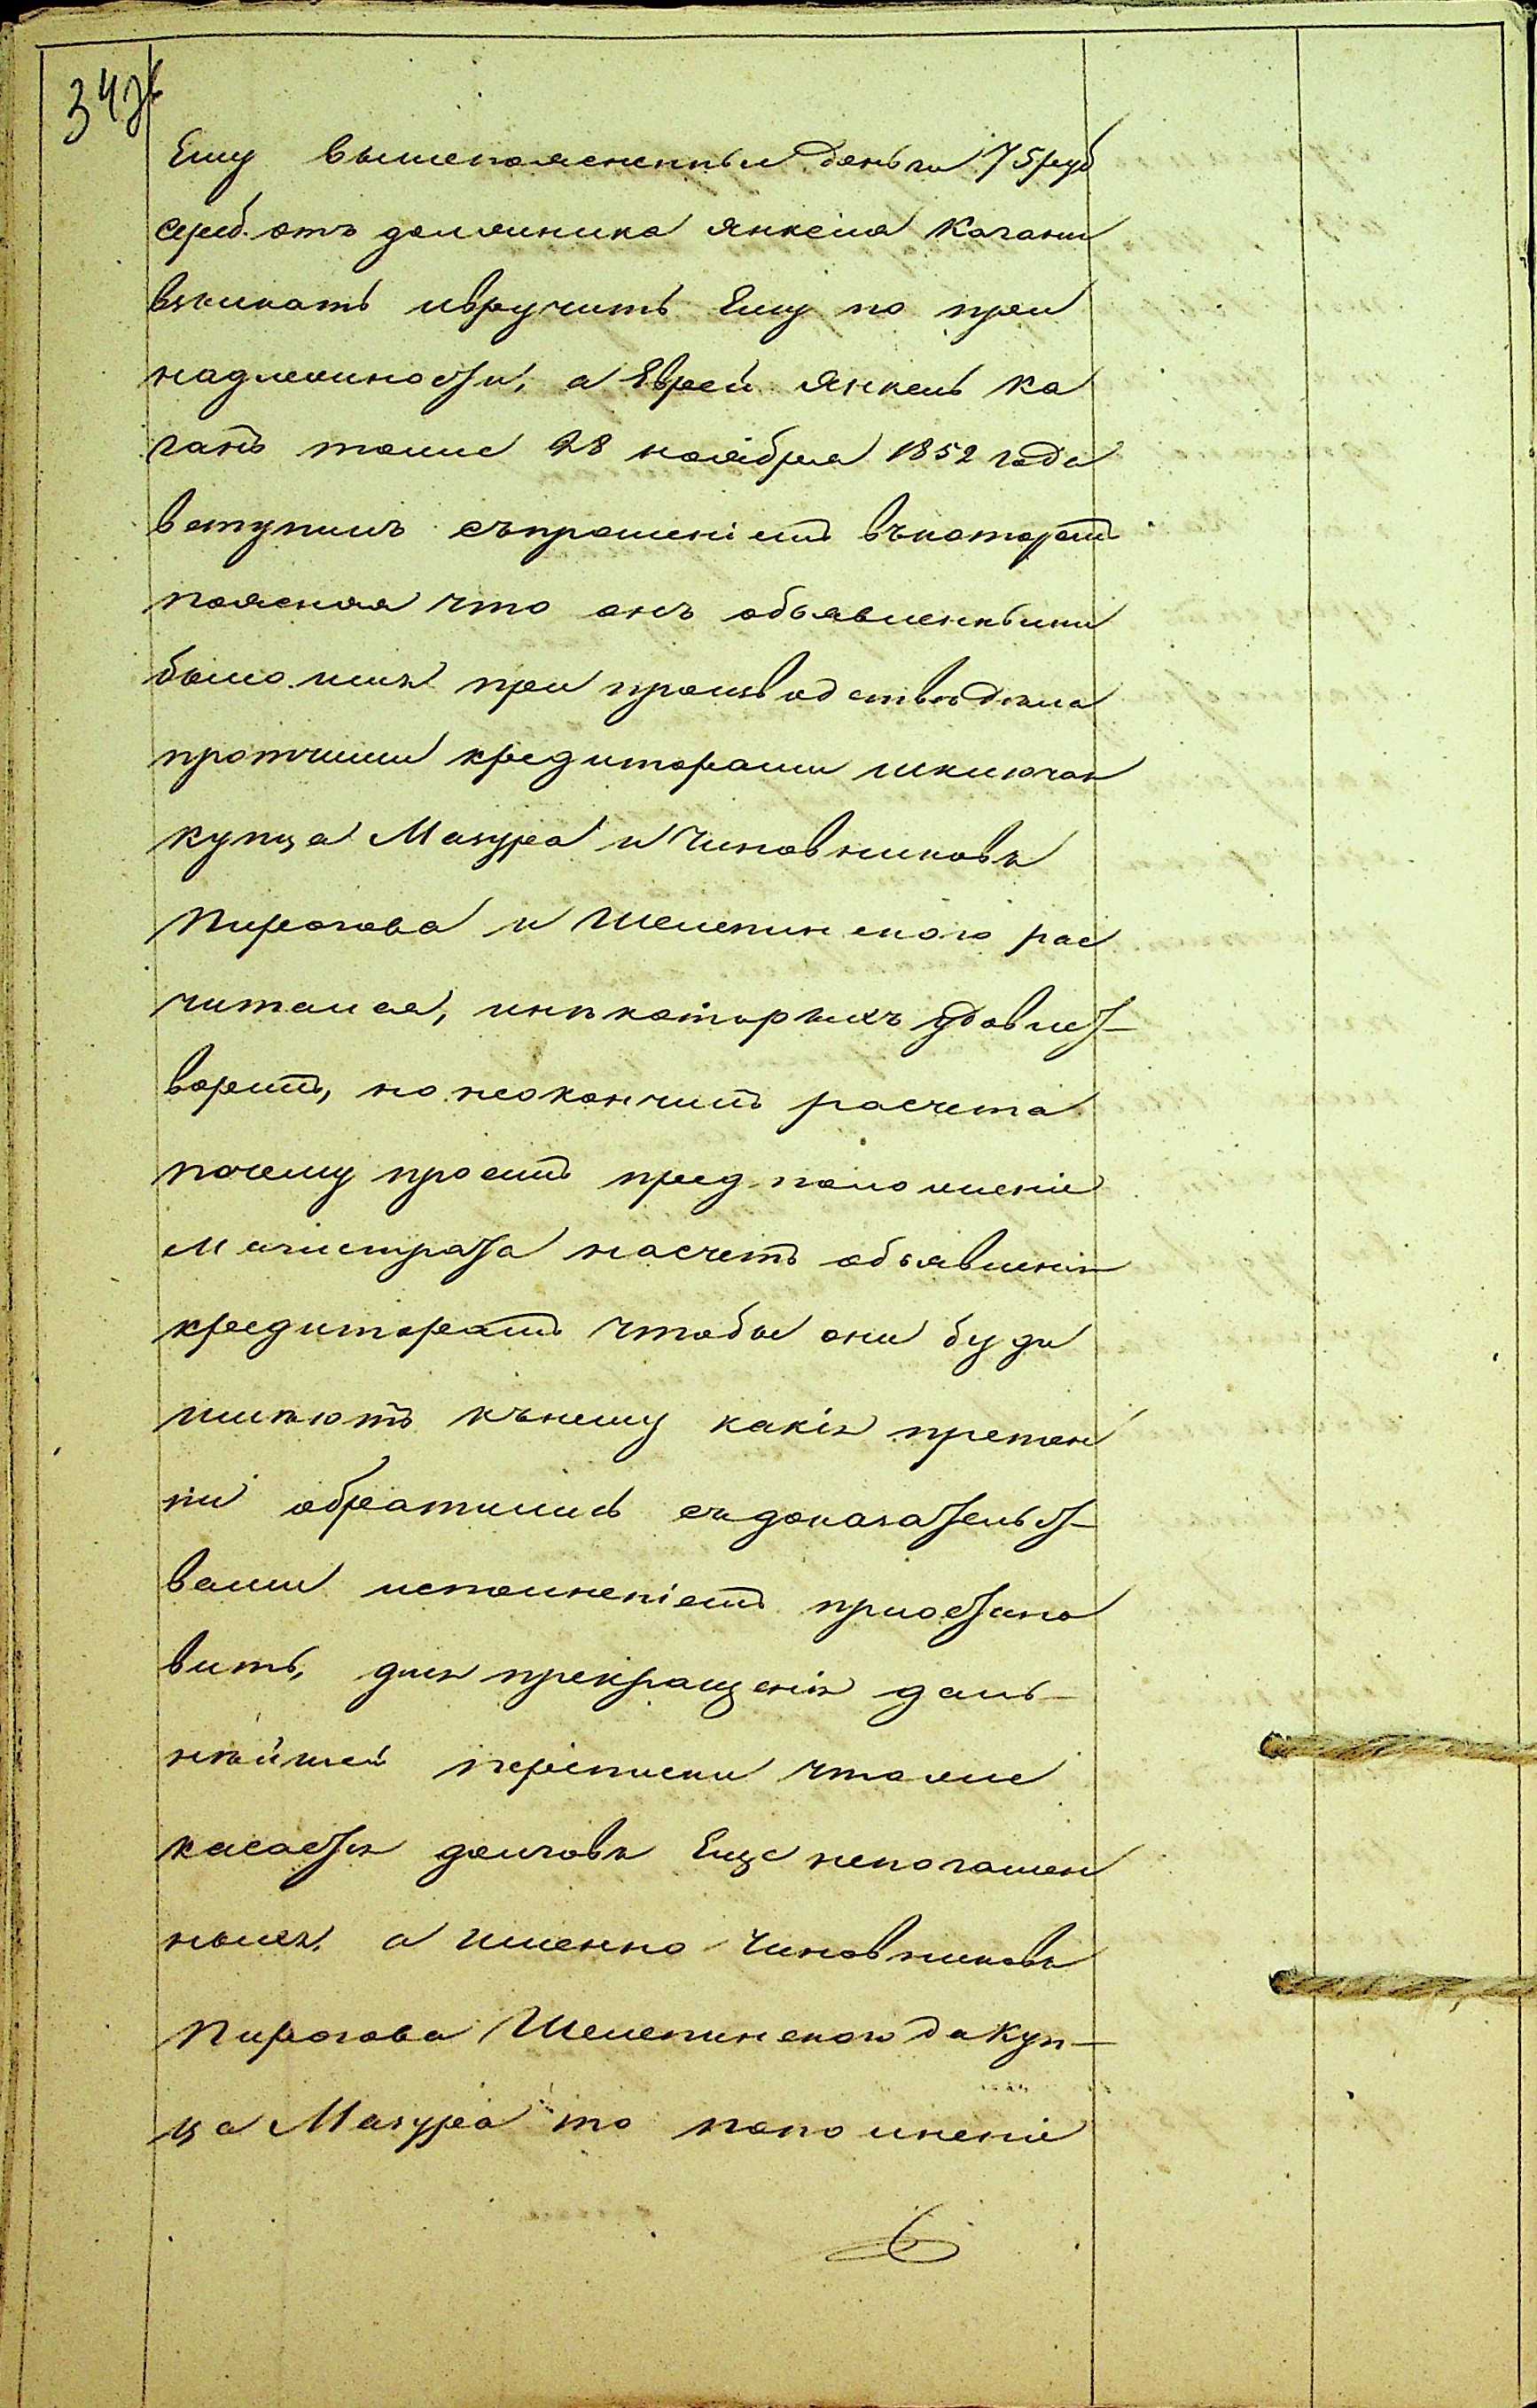 34об
Ему вышепоясненныи деньги 75 руб
сереб. отъ должника Янкеля Каганы
взыскать и вручить Ему по при
надлежности, а Еврей Янкель Ка
ганъ тоже 28 ноября 1852 года
вступилъ съ прошеніемъ въ которомъ
поясняя что онъ объявленными
было имъ при производствѣ дѣла
протчими кредиторами изключая
купца Мазура и Чиновниковъ
Пирогова и Шелепинского рас
читался, и нѣкоторыхъ удовлет-
ворилъ, но неокончилъ расчета
почему проситъ предположеніе
Магистрата насчетъ объявленія
кредиторамъ чтобы они буде
имѣютъ къ нему какія претен
зіи обратились съ доказательст-
вами исполненіемъ приостано
вить, для прекращенія даль-
нѣйшей переписки что же
касается долговъ Еще непогашен
ныхъ, а именно Чиновниковъ
Пирогова Шелепинского да Куп-
ца Мазура то пополненіе